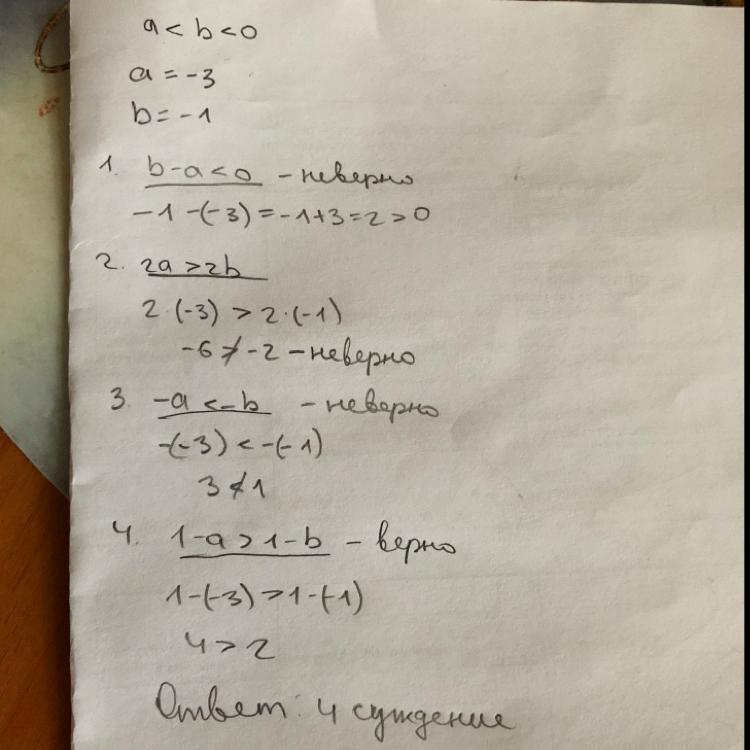 a < b < 0
a = -3
b = -1
1. b-a<0 - неверно
-1 -(-3) = -1+3=2 > 0
2. 2a >2b
2·(-3) > 2·(-1)
-6 ≯ -2 - неверно
3. -a <-b - неверно
-(-3) < -(-1)
3 ≮ 1
4. 1-a > 1-b - верно
1-(-3) > 1-(-1)
4 > 2
Ответ: 4 суждение